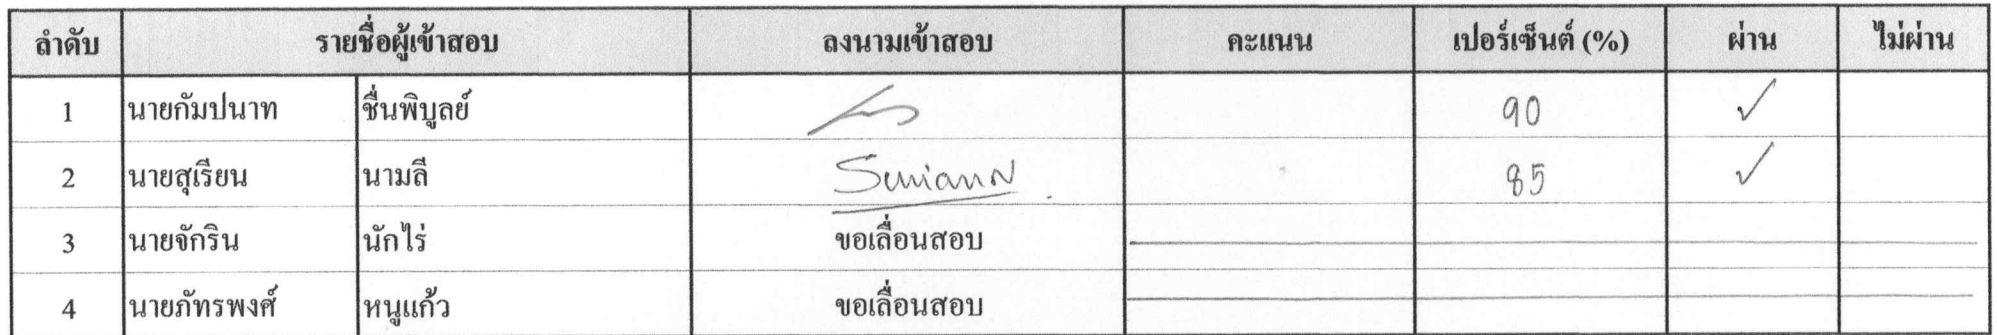 ลำดับ รายชื่อผู้เข้าสอบ ลงนามเข้าสอบ คะแนน เปอร์เซ็นต์ (%) ผ่าน ไม่ผ่าน
1 นายกัมปนาท ชื่นพิบูลย์ 90 ✓
2 นายสุเรียน นามลี 85 ✓
3 นายจักริน นักไร่ ขอเลื่อนสอบ
4 นายภัทรพงศ์ หนูแก้ว ขอเลื่อนสอบ